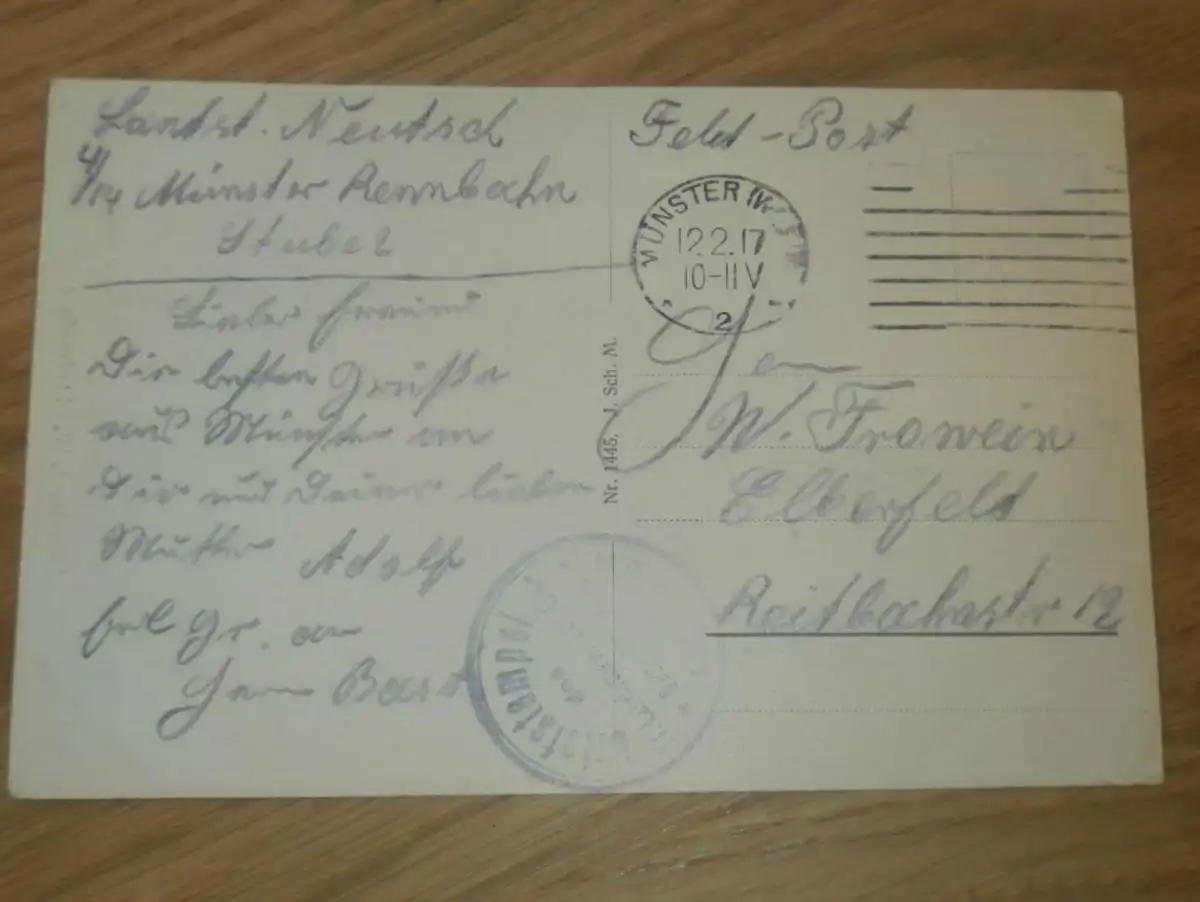 Landst. Neutsch
4/14 Münster Rennbahn
Stube 2
Lieber Freund
Die besten Grüße
aus Münster an
Dir und Deiner lieben
Mutter Adolf
Gr. an
Herrn
Feld-Post
MÜNSTER (W
12.2.17
10-11 V
2
Nr. 1445. J. Sch. M.
Herrn
W. Frowein
Elberfeld
12
Briefstempel